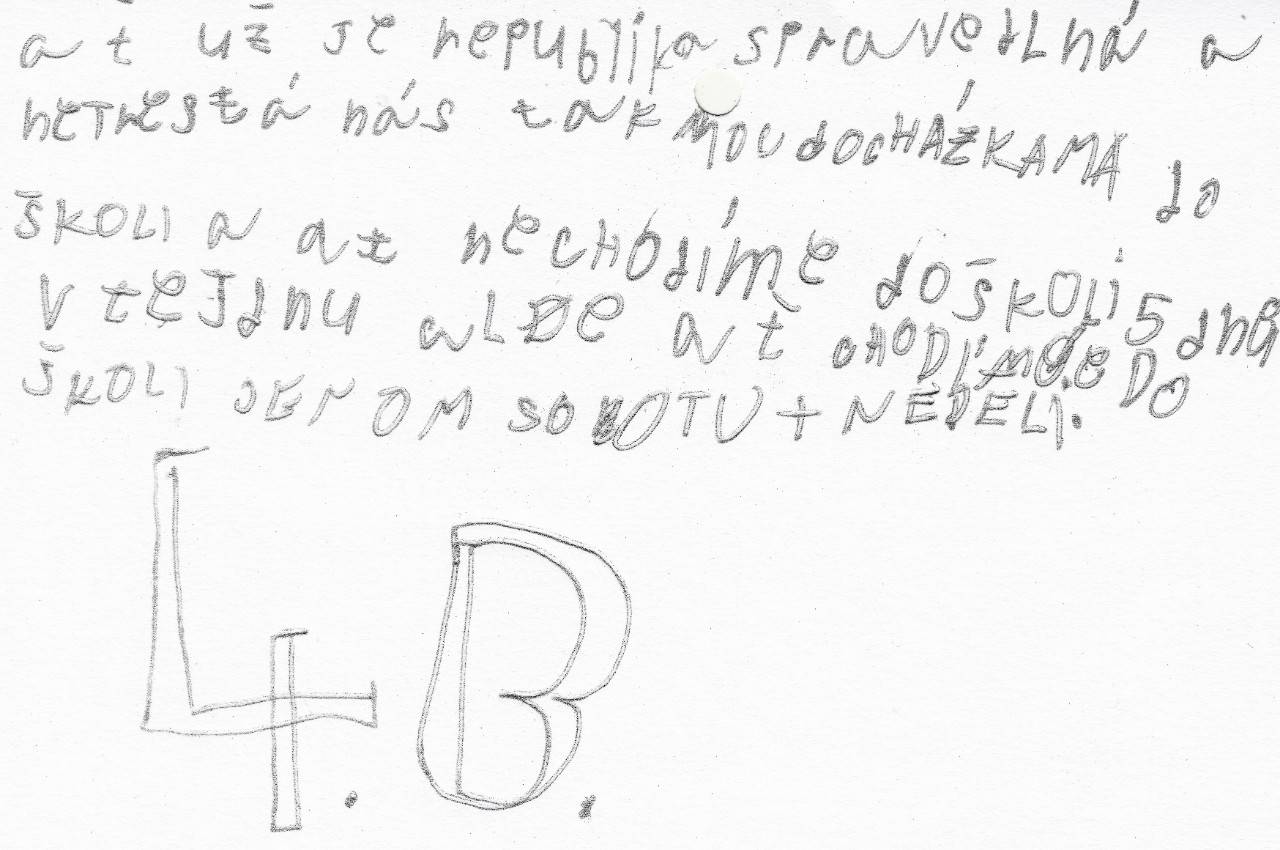 ať už je nepublika spravedlná a
netrestá nás takmou docHÁŽKAMA do
ŠKOLI a at necHodíme do ŠKOLI 5 dnů
v tejdnu alDe ať cHODíme DO
ŠKOLI JENOM SOBOTU + NEDELI.
4. B.